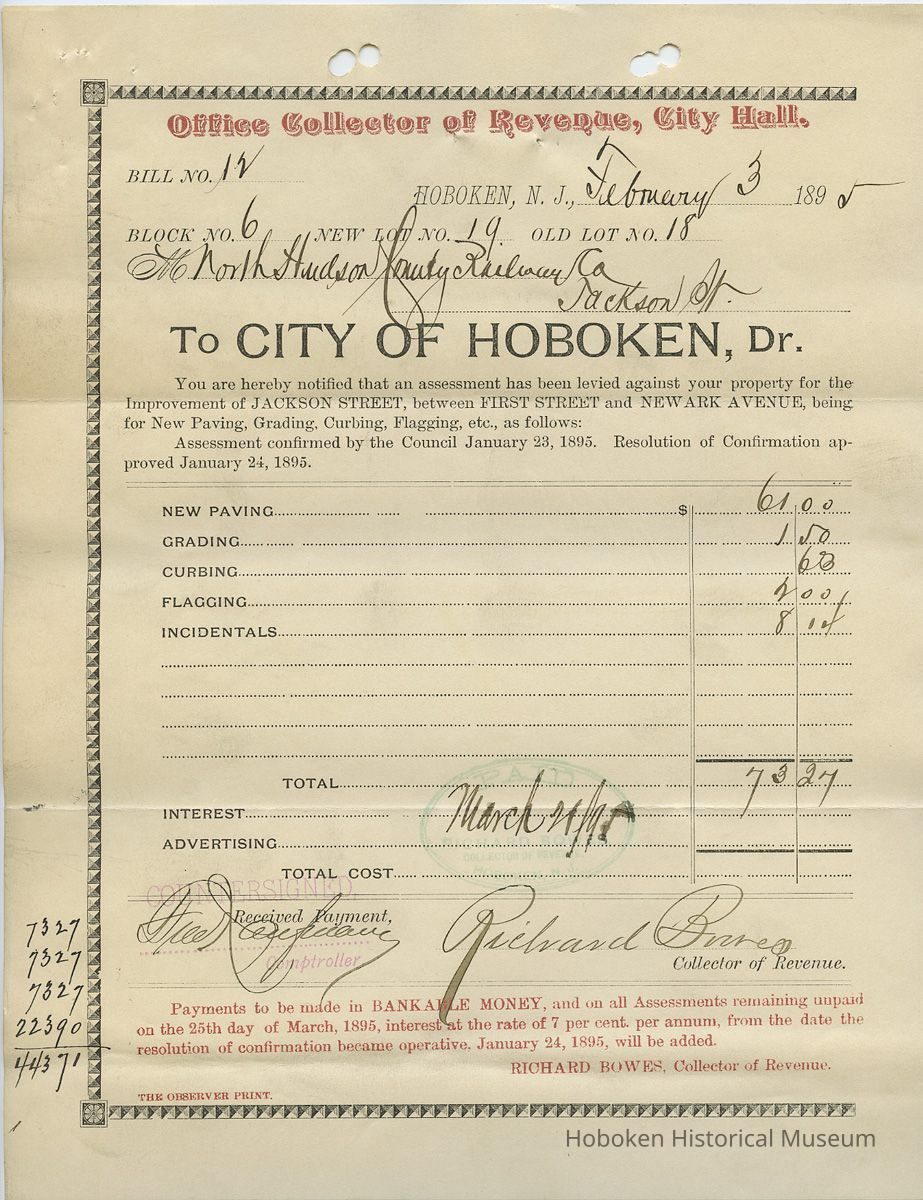 Office Collector of Revenue, City Hall.
BILL NO. 12
HOBOKEN, N. J., February 3 1895
BLOCK NO. 6 NEW LOT NO. 19 OLD LOT NO. 18
M North Hudson County Railway Co
Jackson St.
To CITY OF HOBOKEN, Dr.
You are hereby notified that an assessment has been levied against your property for the
Improvement of JACKSON STREET, between FIRST STREET and NEWARK AVENUE, being
for New Paving, Grading, Curbing, Flagging, etc., as follows:
Assessment confirmed by the Council January 23, 1895. Resolution of Confirmation ap-
proved January 24, 1895.
NEW PAVING $ 61 00
GRADING 1 50
CURBING 63
FLAGGING 2 00
INCIDENTALS 8 14
TOTAL 73 27
INTEREST
ADVERTISING
March 21/95
PAID
COLLECTOR OF REVENUE
HOBOKEN, N.J.
TOTAL COST
COUNTERSIGNED,
Received Payment,
Richard Bowes
Comptroller
Collector of Revenue.
7327
7327
7327
22390
44371
Payments to be made in BANKABLE MONEY, and on all Assessments remaining unpaid
on the 25th day of March, 1895, interest at the rate of 7 per cent. per annum, from the date the
resolution of confirmation became operative, January 24, 1895, will be added.
RICHARD BOWES, Collector of Revenue.
THE OBSERVER PRINT.
Hoboken Historical Museum